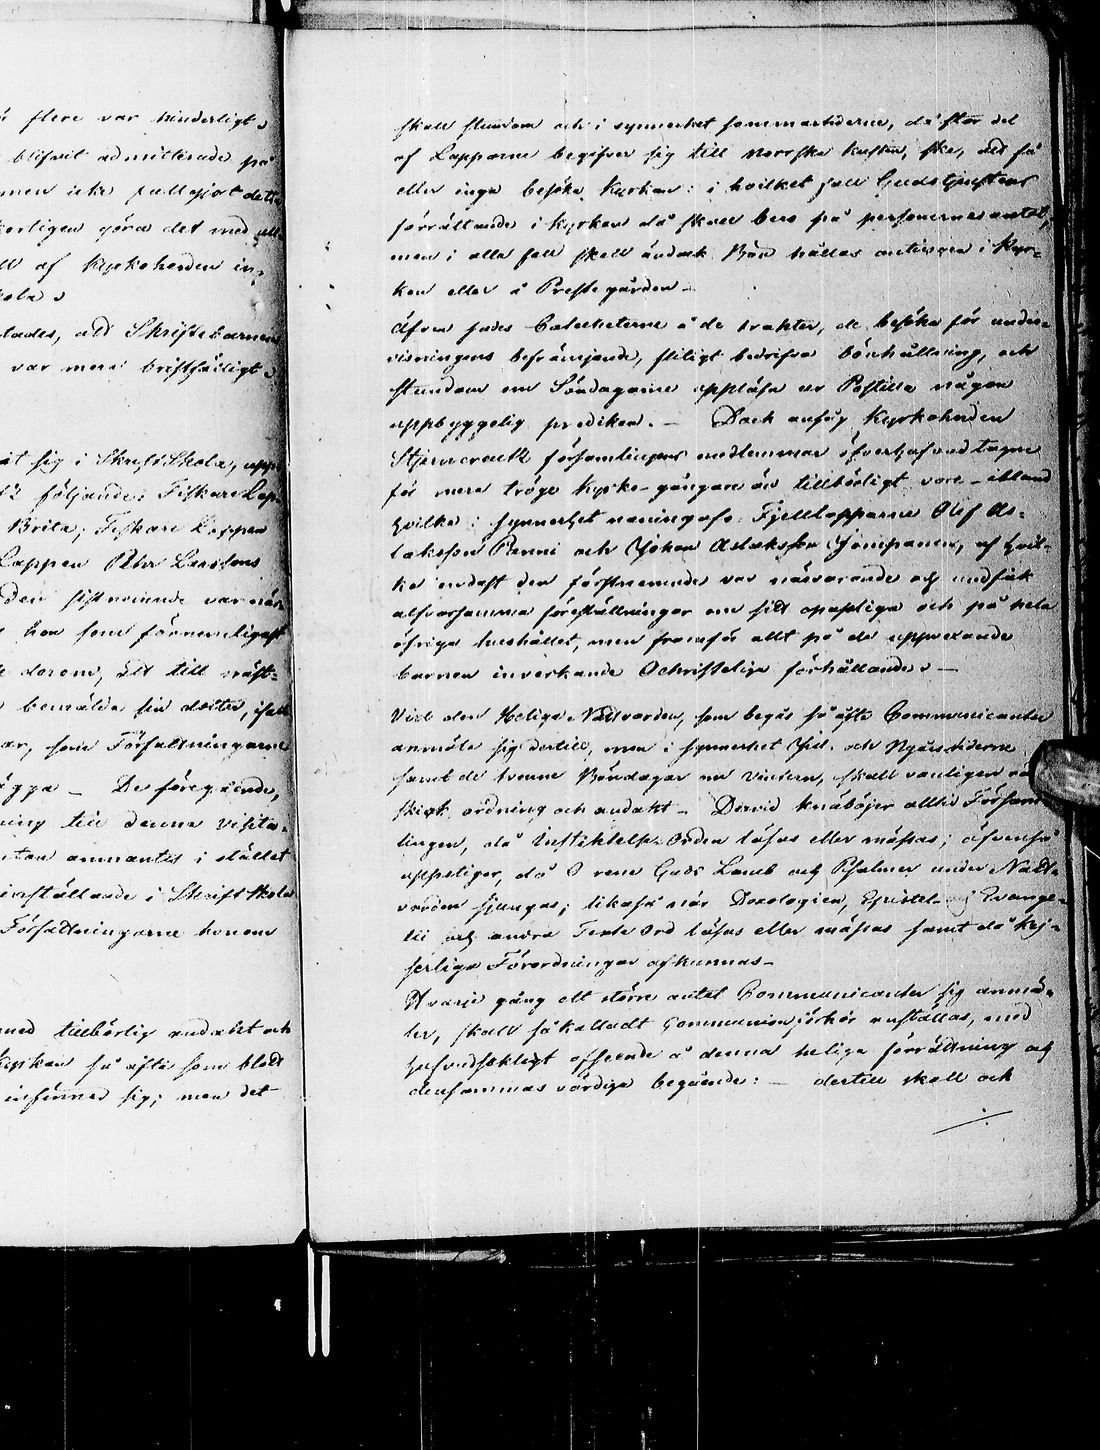 flere var hinderligt
blifvit admitterade på
men icke fullgjort detta
göra det med
af Kyrkoherden in-
skola
att Skriftebarnen
var mera bristfälligt
sig i Skrift Skola,
följande: Fiskare Lap-
Brita, Fiskare Lappen
Lappen Peter Larssons
den sistnemnde var
hon som förnemligast
derom, att till
bemälde sin dotter, ifall
som Författningarne
De föregående,
ning till denna Visita-
ammantes i stället
inställande i Skrift skola
Författningarne honom
med tillbörlig andakt och
Kyrkan så ofta som blott
infinner sig; men det
skall stundom och i synnerhet sommartiderne, då stör del
af Lapparne begifver sig till Norrska kusten, ske, att få
eller inga besöka Kyrkan: i hvilket fall Gudstjenstens
förrättande i kyrkan då skall bero på personernes antal,
men i alla fall skall ändock Bön hållas antingen i Kyr-
kan eller å Prestegården –
Äfven sades Catecheterne å de trakter, de besöka för under-
visningens befrämjande, flitigt bedrifva bönhållning, och
stundom om Söndagarne uppläsa ur Postilla någon
uppbyggelig predikan. – Dock ansåg Kyrkoherden
Stjerncreutz församlingens medlemmar öfverhufvud tagne
för mera tröge Kyrko-gångare än tillbörligt vore – ibland
hvilka i synnerhet namngafs Fjelllapparne Olof As-
laksson Panni och Johan Aslaksson Jompanen, af hvil-
ka endast den förstnemnde var närvarande och undfick
alfvarsamma föreställningar om sitt opassliga och på hela
öfriga hushållet, men framför allt på de uppvexande
barnen inverkande Ochristeliga förhållande –
Vid den Heliga Nattvarden, som begås så ofta Communicanter
anmäla sig dertill, men i synnerhet Jul- och Nyårstiderne
samt de tvenne Böndagar om Vintern, skall vanligen
skick, ordning och andakt – Dervid knäböjer alltid Försam-
lingen, då Instiktelse-Orden läsas eller mässas; äfvenså
uppstiger, då O rene Guds Lamb och Psalmer under Natt-
varden sjungas; likaså när Doxologien, Epistel och Evange-
lii och andra Texte Ord läsas eller mässas samt då Kej-
serliga Förordningar afkunnas –
Hvarje gång ett större antal Communicanter sig anmä-
ler, skall såkalladt Communionförhör anställas, med
hufvudsakligt afseende å denna heliga förrättning och
densammas värdiga begående: – dertill skall och